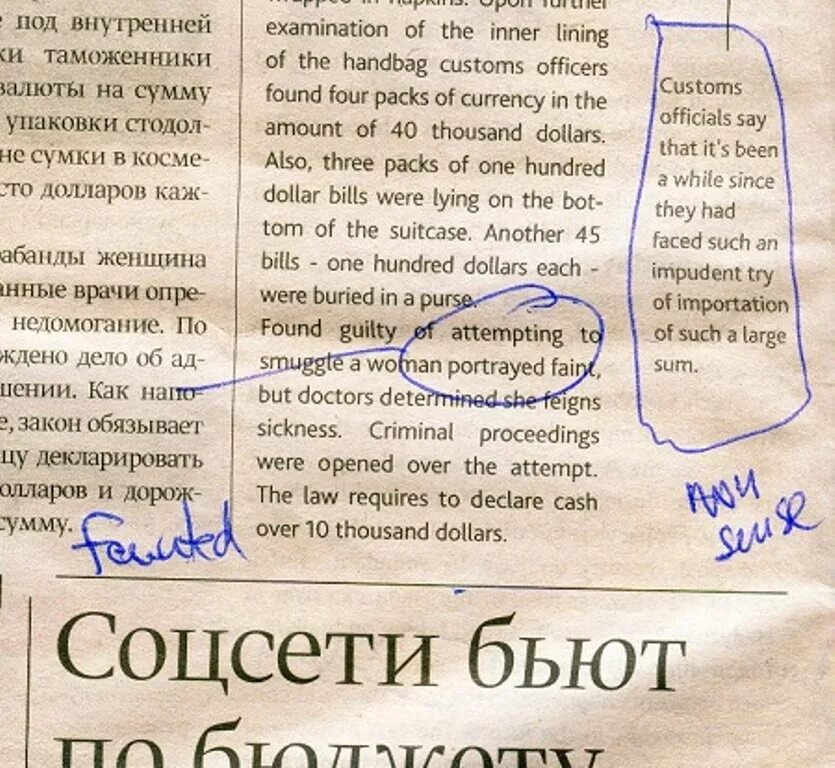 е под внутренней
ки таможенники
валюты на сумму
упаковки стодол-
не сумки в косме-
сто долларов каж-
рабанды женщина
анные врачи опре-
недомогание. По
ждено дело об ад-
шении. Как напо-
е, закон обязывает
цу декларировать
олларов и дорож-
сумму.
wrapped in napkins. Upon further
examination of the inner lining
of the handbag customs officers
found four packs of currency in the
amount of 40 thousand dollars.
Also, three packs of one hundred
dollar bills were lying on the bot-
tom of the suitcase. Another 45
bills - one hundred dollars each -
were buried in a purse.
Found guilty of attempting to
smuggle a woman portrayed faint,
but doctors determined she feigns
sickness. Criminal proceedings
were opened over the attempt.
The law requires to declare cash
over 10 thousand dollars.
Customs
officials say
that it's been
a while since
they had
faced such an
impudent try
of importation
of such a large
sum.
fainted
any
sense
Соцсети бьют
по бюджету